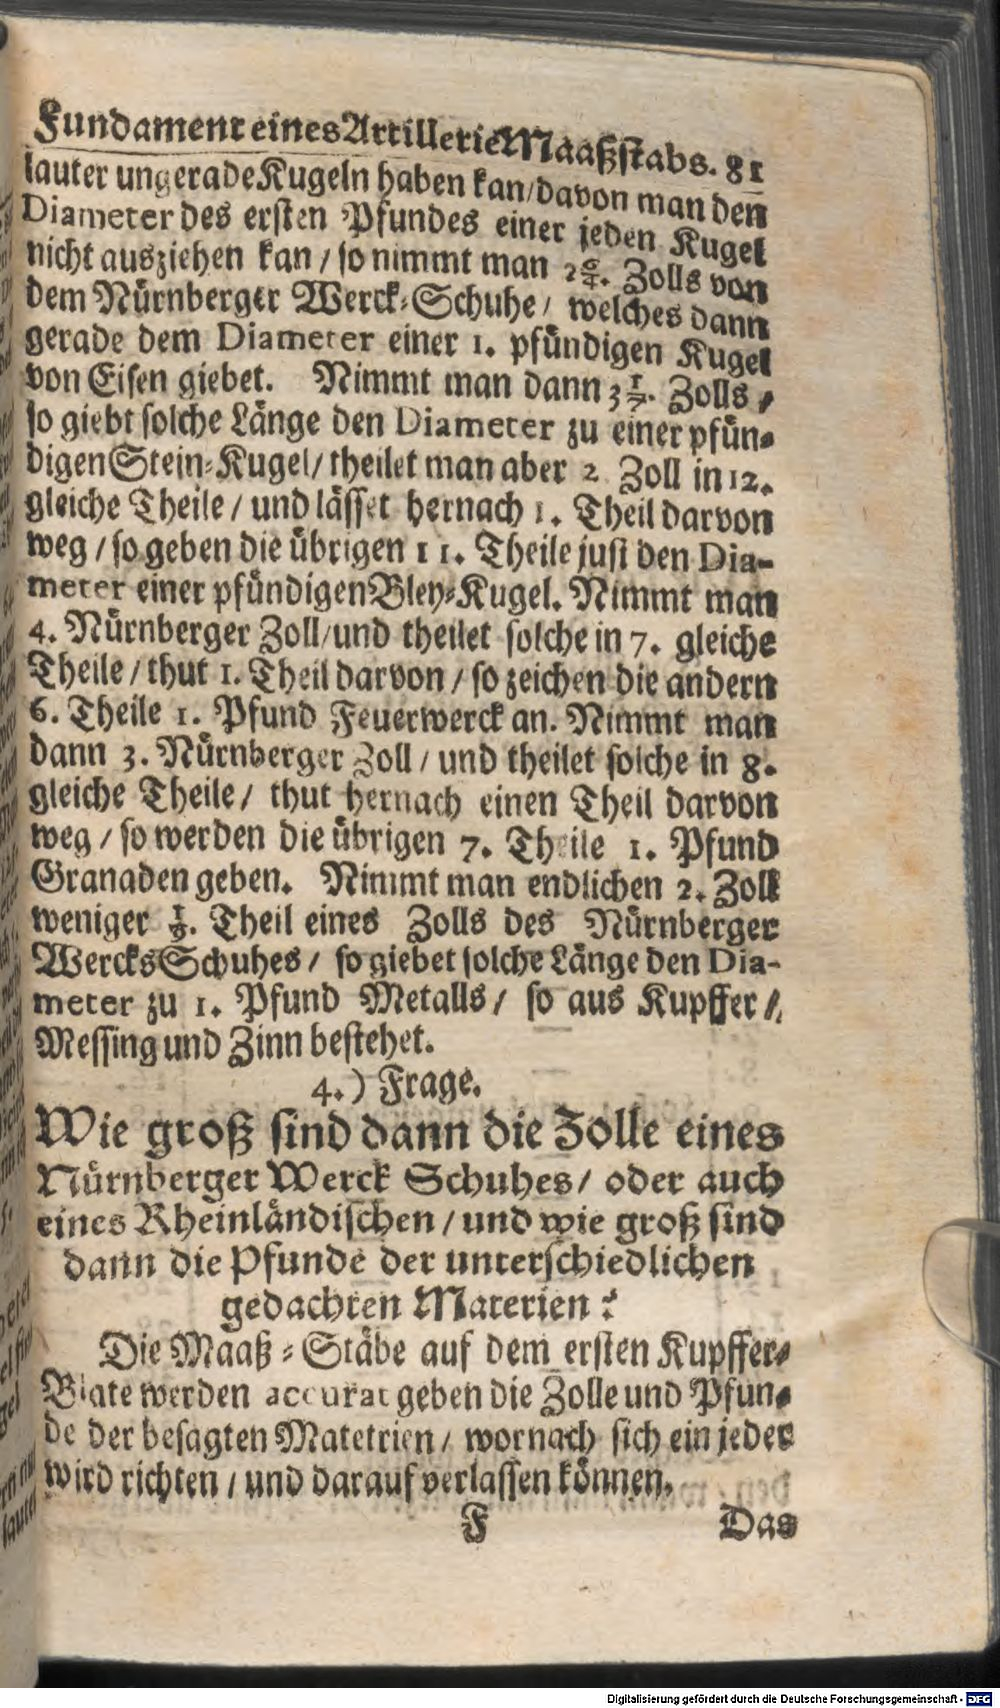 Fundament eines Artillerie Maaßstabs. 81
lauter ungerade Kugeln haben kan/ davon man den
Diameter des ersten Pfundes einer jeden Kugel
nicht ausziehen kan / so nimmt man Zolls von
dem Nürnberger Werck-Schuhe / welches dann
gerade dem Diameter einer 1. pfündigen Kugel
von Eisen giebet. Nimmt man dann 3 1/7. Zolls /
so giebt solche Länge den Diameter zu einer pfün-
digen Stein-Kugel / theilet man aber 2 Zoll in 12.
gleiche Theile / und lässet hernach 1. Theil darvon
weg / so geben die übrigen 11. Theile just den Dia-
meter einer pfündigen Bley-Kugel. Nimmt man
4. Nürnberger Zoll/ und theilet solche in 7. gleiche
Theile / thut 1. Theil darvon / so zeichen die andern
6. Theile 1. Pfund Feuerwerck an. Nimmt man
dann 3. Nürnberger Zoll / und theilet solche in 8.
gleiche Theile / thut hernach einen Theil darvon
weg / so werden die übrigen 7. Theile 1. Pfund
Granaden geben. Nimmt man endlichen 2. Zoll
weniger Theil eines Zolls des Nürnberger
Wercks Schuhes / so giebet solche Länge den Dia-
meter zu 1. Pfund Metalls / so aus Kupffer /
Messing und Zinn bestehet.
4.) Frage.
Wie groß sind dann die Zolle eines
Nürnberger Werck Schuhes / oder auch
eines Rheinländischen / und wie groß sind
dann die Pfunde der unterschiedlichen
gedachten Materien?
Die Maaß-Stäbe auf dem ersten Kupffer-
Blate werden accurat geben die Zolle und Pfun-
de der besagten Matetrien / wornach sich ein jeder
wird richten / und darauf verlassen können.
F Das
Digitalisierung gefördert durch die Deutsche Forschungsgemeinschaft - DFG